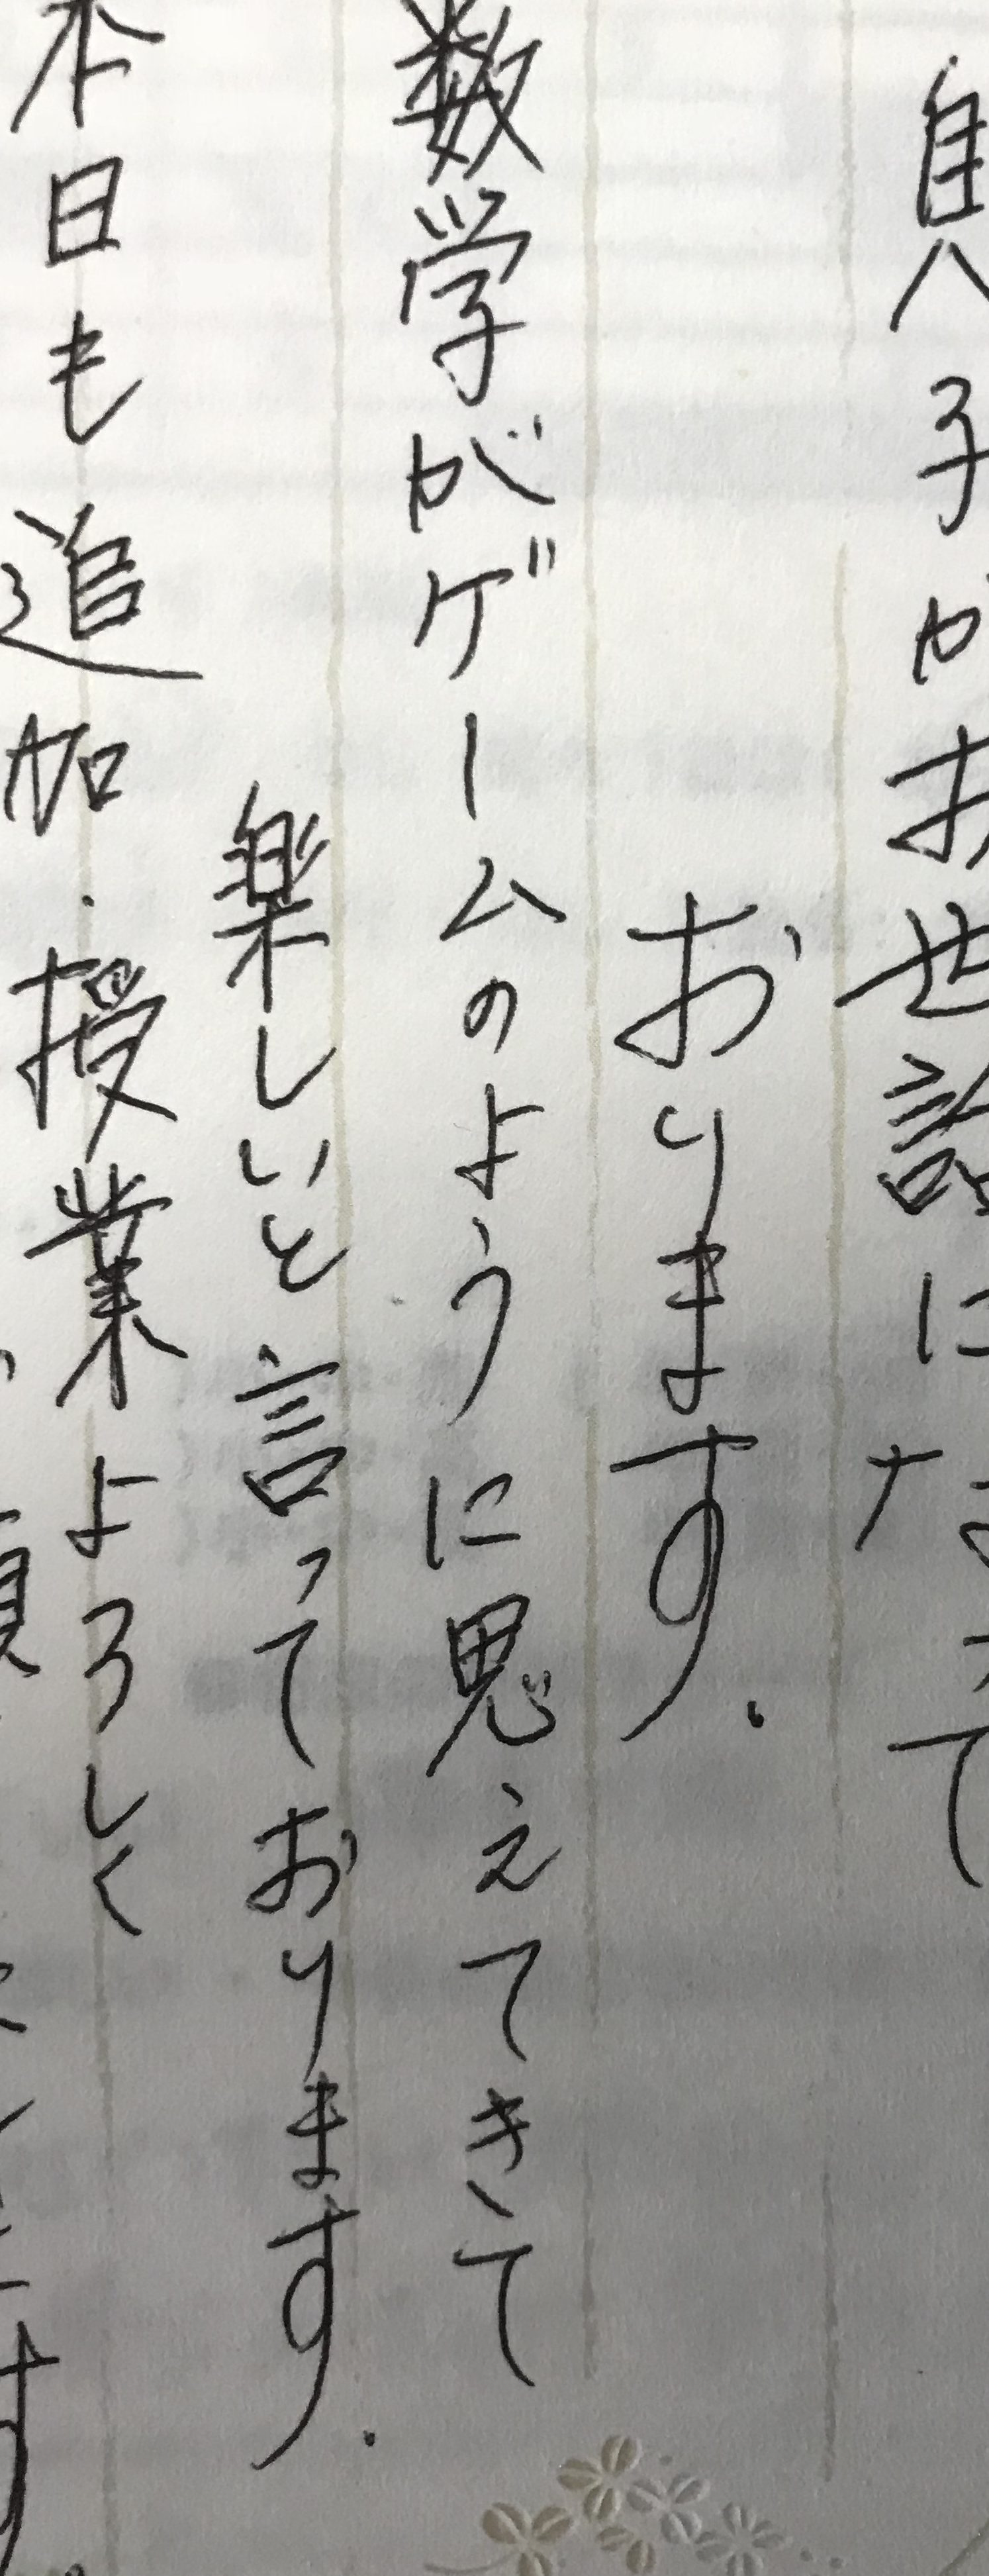 真八子がお世話になって
おります.
数学がゲームのように思えてきて
楽しいと言っております.
本日も追加.授業よろしく